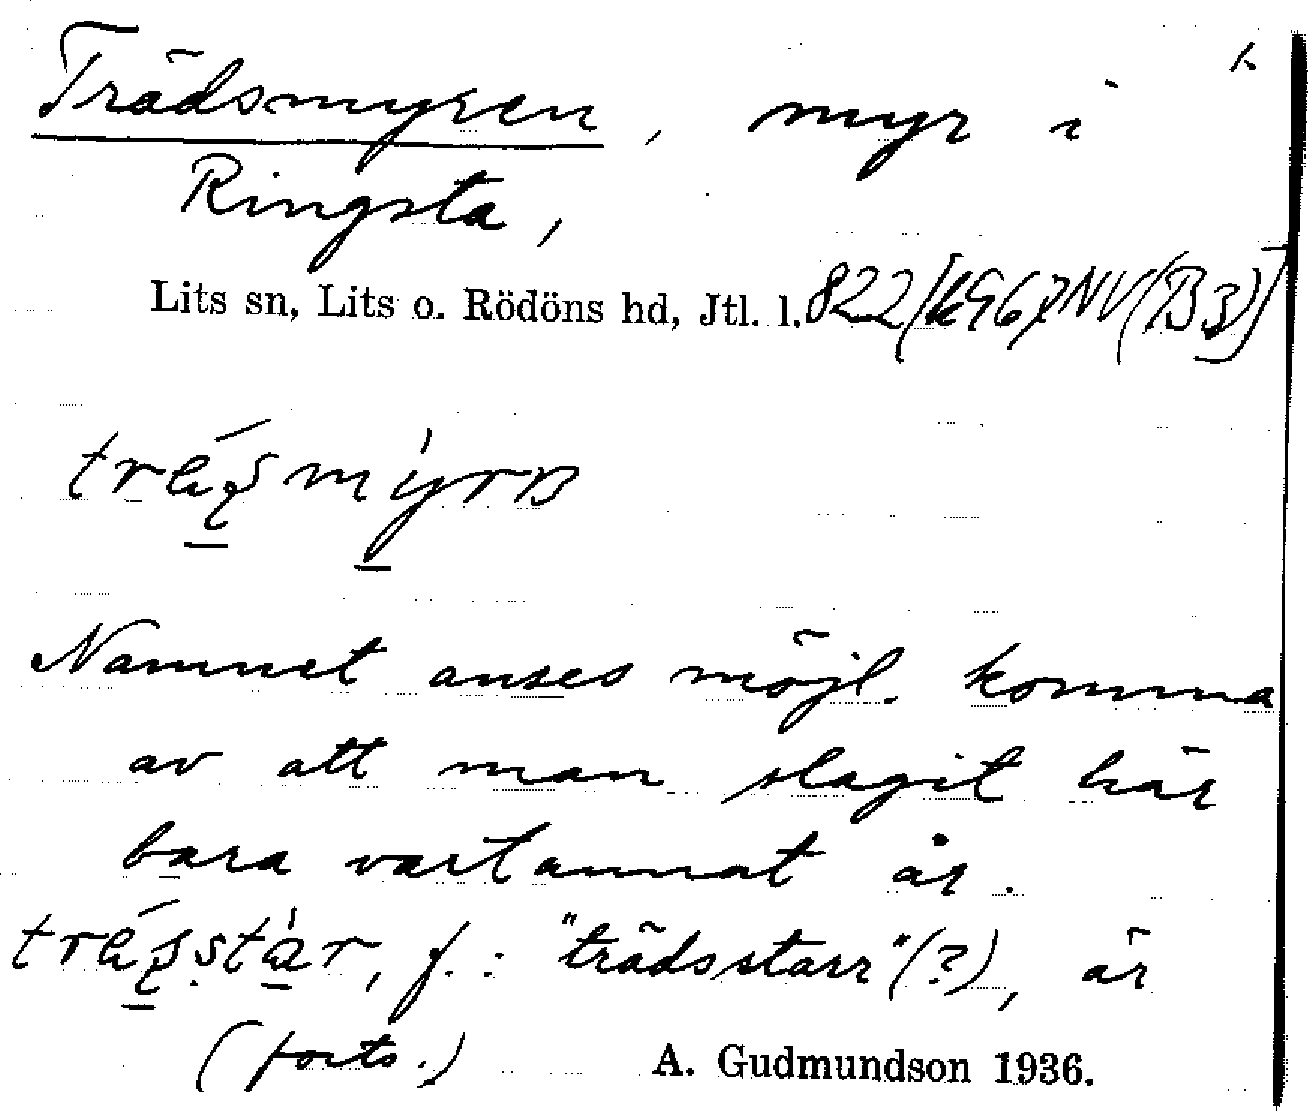 1.
Trädsmyren, myr i
Ringsta,
Lits sn, Lits o. Rödöns hd, Jtl. l. 822
Namnet anses möjl. komma
av att man slagit här
bara vartannat år.
f.: "trädsstarr"(?), är
(forts.)
A. Gudmundson 1936.